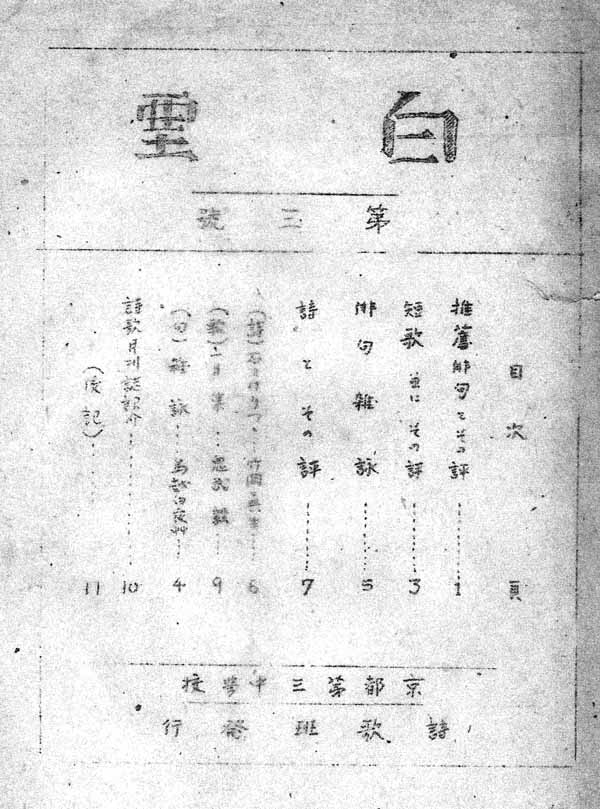 白雲
第三號
目次 頁
推薦俳句とその評………1
短歌並にその評………3
俳句雑詠………5
詩とその評………7
(詩) ……6
(歌)二月集… ……9
(句)雑詠… ……4
詩歌月刊誌紹介………10
(後記)………11
京都第三中學校
詩歌班發行